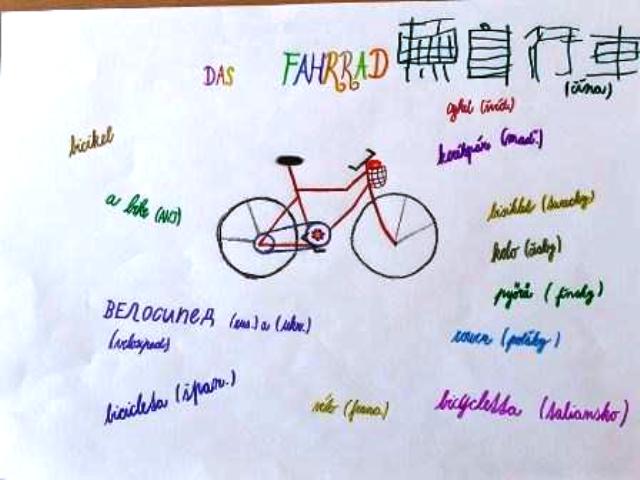 DAS FAHRRAD 無自行車
(čína)
cykel (švéd.)
bicikel
kerékpár (maď.)
a bike (AKJ)
bisiklet (turecky)
kolo (česky)
pyörä (finsky)
ВЕЛОСИПЕД (rus.) a (ukr.)
(velosiped)
rower (poľsky)
bicicleta (špan.)
vélo (franc)
bicycletta (taliansko)